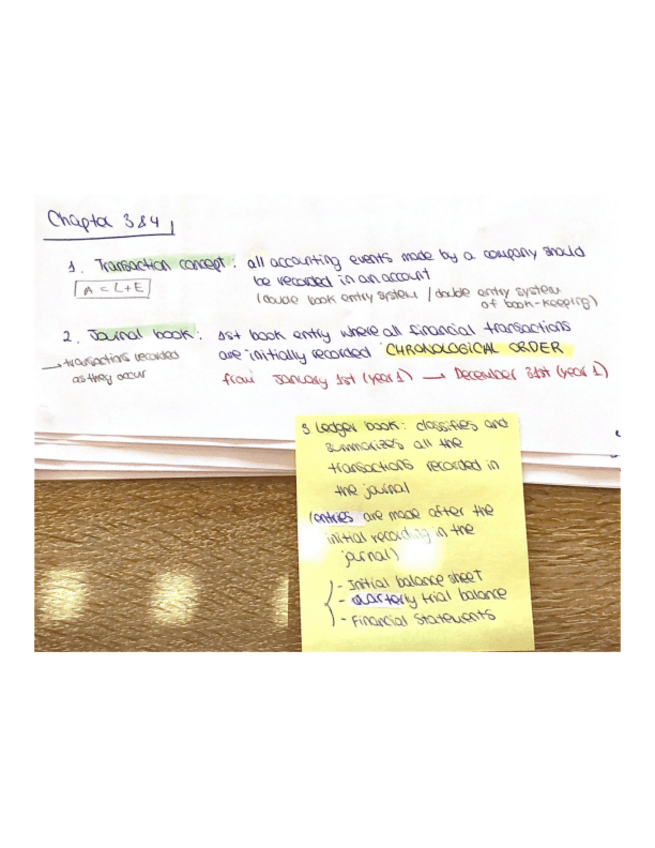 Chapter 3&4
1. Transaction concept: all accounting events made by a company should
be recorded in an account
A = L+E
(double book entry system / double entry system
of book-keeping)
2. Journal book: 1st book entry where all financial transactions
are initially recorded CHRONOLOGICAL ORDER
→ transactions recorded
as they occur
from January 1st (year 1) → December 31st (year 1)
3 Ledger book: classifies and
summarizes all the
transactions recorded in
the journal
(entries are made after the
initial recording in the
journal)
- Initial balance sheet
- quarterly trial balance
- Financial Statements